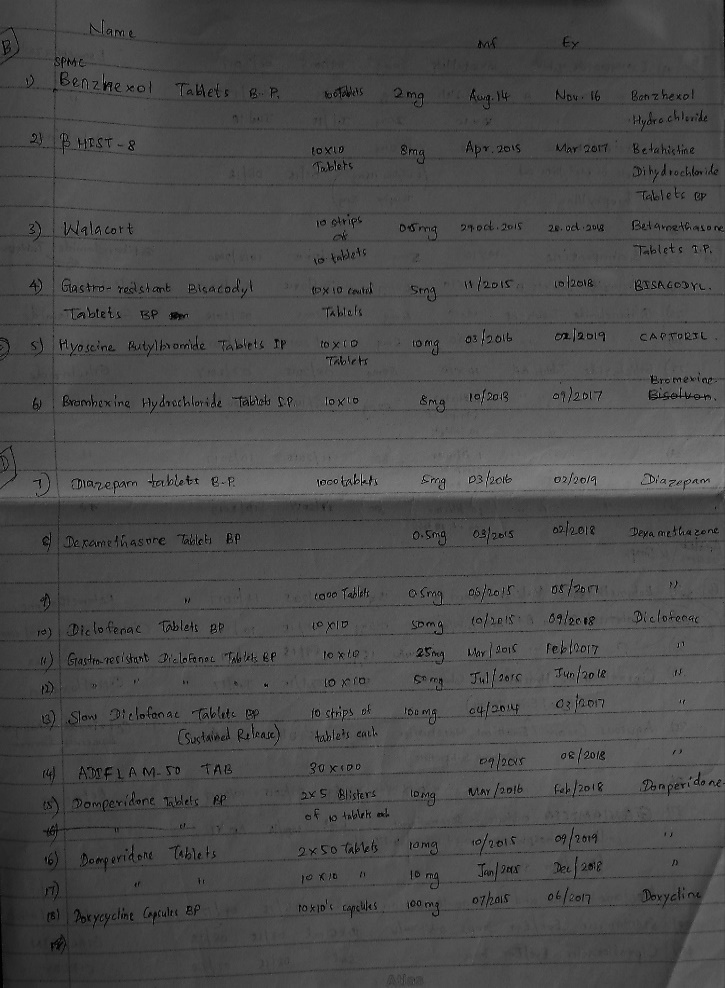 B
Name Mf Ex
SPMC
1) Benzhexol Tablets B.P. 2mg Aug.14 Nov.16 Benzhexol
Hydrochloride
2) β HIST-8 10x10 8mg Apr.2015 Mar 2017 Betahistine
Tablets Dihydrochloride
Tablets BP
3) Walacort 10 strips 0.5mg 29 oct.2015 28.oct.2018 Betamethasone
of Tablets I.P.
10 tablets
4) Gastro-resistant Bisacodyl 10x10 coated 5mg 11/2015 10/2018 BISACODYL.
Tablets BP Tablets
5) Hyoscine Butylbromide Tablets IP 10x10 10mg 03/2016 02/2019 CAPTORIL
Tablets
Bromexine
6) Bromhexine Hydrochloride Tablets I.P. 10x10 8mg 10/2013 09/2017 Bisolvon.
D
7) Diazepam tablets B.P. 1000tablets 5mg 03/2016 02/2019 Diazepam
8) Dexamethasone Tablets BP 0.5mg 03/2015 02/2018 Dexamethazone
9) " 1000 Tablets 0.5mg 06/2015 05/2017 "
10) Diclofenac Tablets BP 10x10 50mg 10/2015 09/2018 Diclofenac
11) Gastro-resistant Diclofenac Tablets BP 10x10 25mg Mar/2015 Feb/2017 "
12) " " " " 10x10 50mg Jul/2015 Jun/2018 "
13) Slow Diclofenac Tablets BP 10 strips of 100mg 04/2014 03/2017 "
(Sustained Release) tablets each
14) 50 TAB 30x100 09/2015 08/2018 "
15) Domperidone Tablets BP 2x5 Blisters 10mg Mar/2016 Feb/2018 Domperidone
16) " " of 10 tablets each
16) Domperidone Tablets 2x50 tablets 10mg 10/2015 09/2019 "
17) " " 10x10 " 10mg Jan/2015 Dec/2018 "
18) Doxycycline Capsules BP 10x10's capsules 100mg 07/2015 06/2017 Doxycline
19)
Atlas